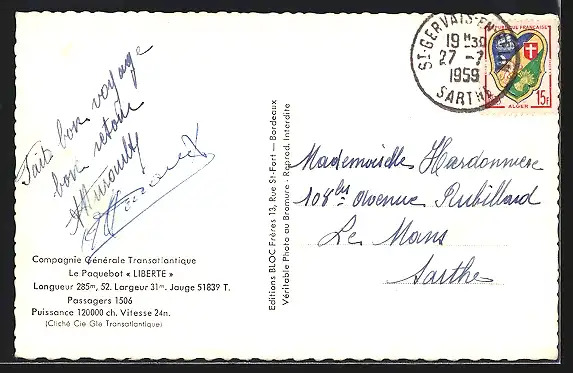 Faits bon voyage
bon retour
Compagnie Générale Transatlantique
Le Paquebot « LIBERTE »
Longueur 285m, 52. Largeur 31m. Jauge 51839 T.
Passagers 1506
Puissance 120000 ch. Vitesse 24n.
(Cliché Cie Gle Transatlantique)
Editions BLOC Frères 13, Rue St-Fort — Bordeaux
Véritable Photo au Bromure - Reprod. Interdite
ST-GERVAIS-EN-
19 H30
27 -7
1959
SARTHE
REPUBLIQUE FRANÇAISE
ALGER 15F
Mademoiselle Hardonniere
108bis Avenue Rubillard
Le Mans
Sarthe